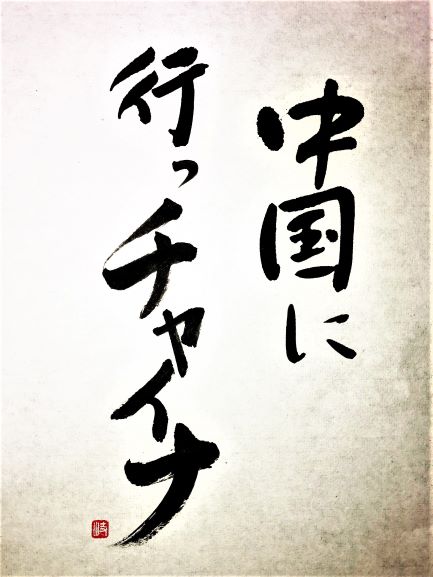 中国に
行っチャイナ